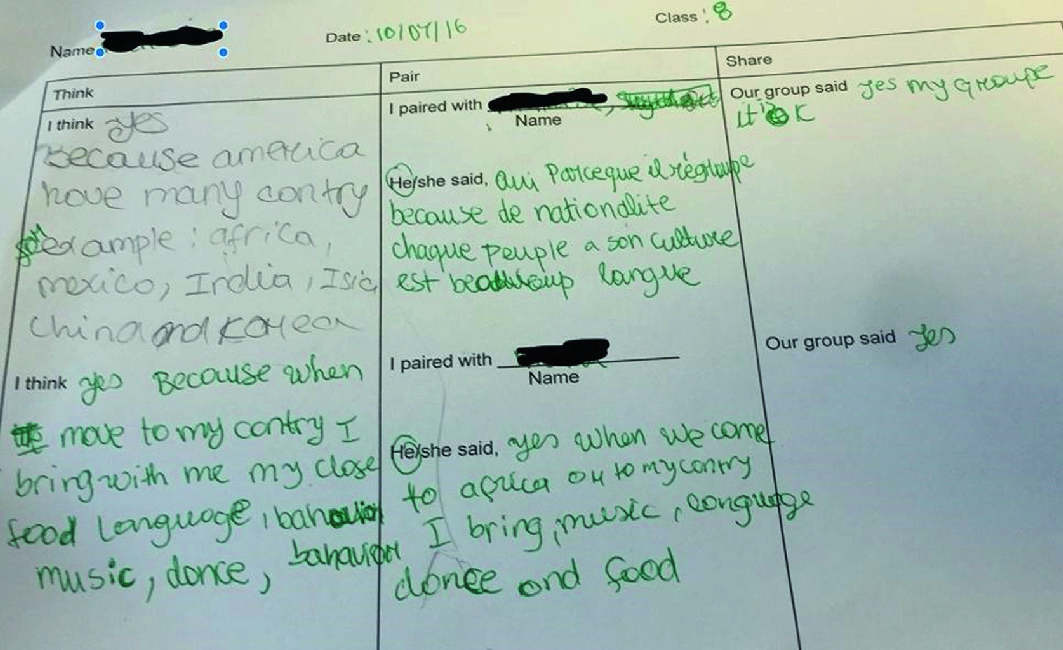 Name
Date: 10/07/16
Class: 8
Think
Pair
Share
I think yes
Because america
have many contry
example: africa,
mexico, India, Isia,
china and Korean
I think yes Because when
move to my contry I
bring with me my close
food Language, bahavior
music, dance, bahavior
I paired with
Name
He/she said, Oui Parceque il régroupe
because de nationalite
chaque peuple a son culture
est beaucoup langue
I paired with
Name
He/she said, yes when we come
to africa ou to my contry
I bring, music, language
dance and food
Our group said yes my Groupe
it'ok
Our group said yes